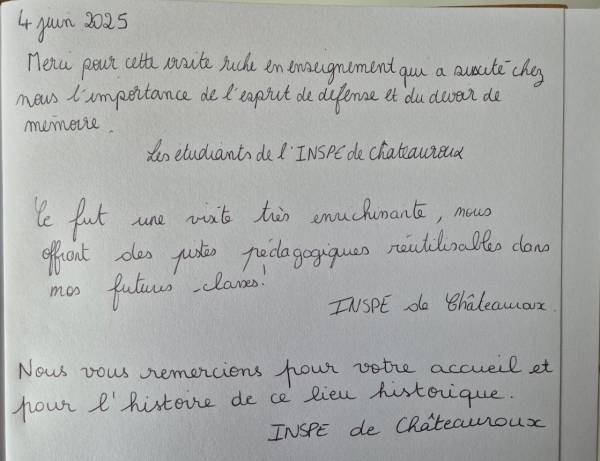 4 juin 2025
Merci pour cette visite riche en enseignement qui a suscité chez
nous l'importance de l'esprit de défense et du devoir de
mémoire.
Les etudiants de l'INSPE de Châteauroux
Ce fut une visite très enrichissante, nous
offrant des pistes pédagogiques réutilisables dans
nos futures classes!
INSPE de Châteauroux.
Nous vous remercions pour votre accueil et
pour l'histoire de ce lieu historique.
INSPE de Châteauroux